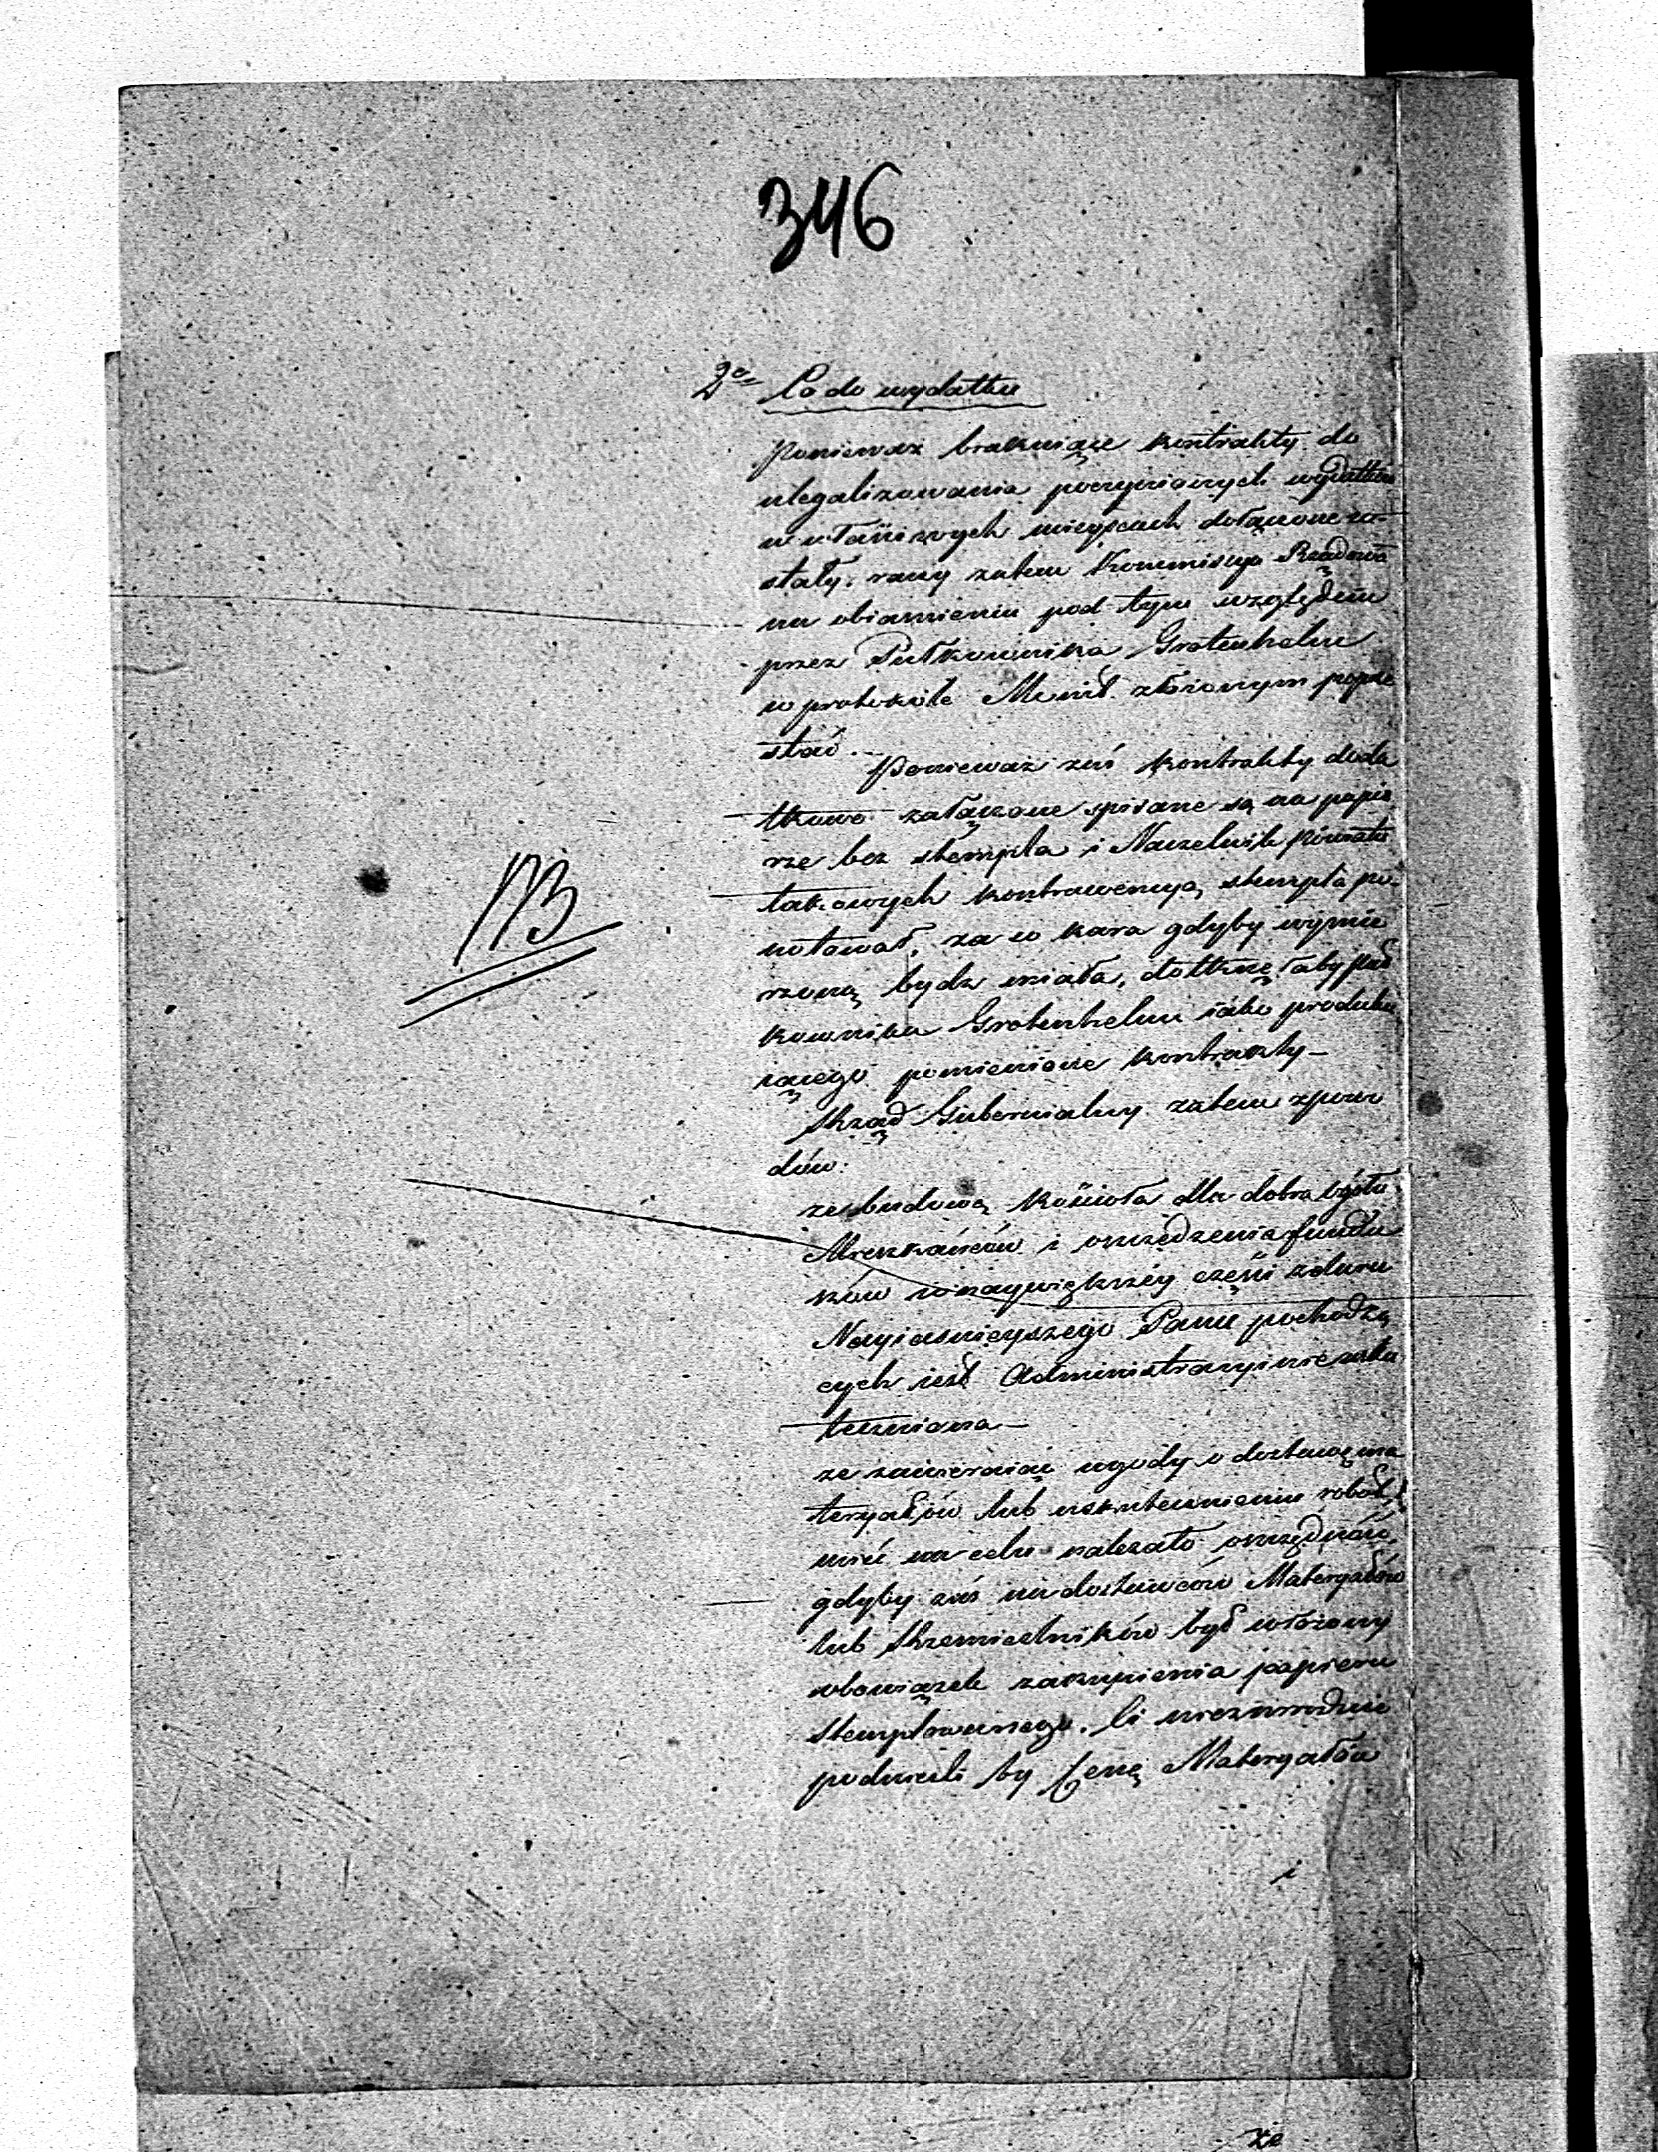 346
2o Co do wydatku
Ponieważ brakuiące kontrakty do
ulegalizowania poczynionych wydatków
w właściwych mieyscach dołączone zo-
stały. raczy zatem Kommissya Rządowa
na obiaśnieniu pod tym względem
przez Pułkownika Grotenhelm
w protokóle Monit. złożonym poprze
stać.
Ponieważ zaś kontrakty doda
tkowo załączone spisane są na papie
rze bez stempla i Naczelnik Powiatu
takowych kontrawencyą stempla po-
notował, za co kara gdyby wymie
rzoną bydz miała, dotknęłaby Puł
kownika Grotenhelm iako produku
iącego pomienione kontrakty –
Rząd Gubernialny zatem z powo
dów.
że budowa Kościoła dla dobra ogółu
Mieszkańców i oszczędzenia fundu
szów w naywiększéy części z daru
Nayiaśnieyszego Pana pochodzą
cych iest Administracyinie usku
teczniona –
że zawieraiąc ugody o dostawę ma
teryałów lub uskutecznieniu robót,
mieć na celu należało oszczędność,
gdyby zaś na dostawców Materyałów
lub Rzemieślników był włożony
obowiązek zakupienia papieru
stemplowanego. Ci niezawodnie
podnieśli by Cenę Materyałów
i
NB
że